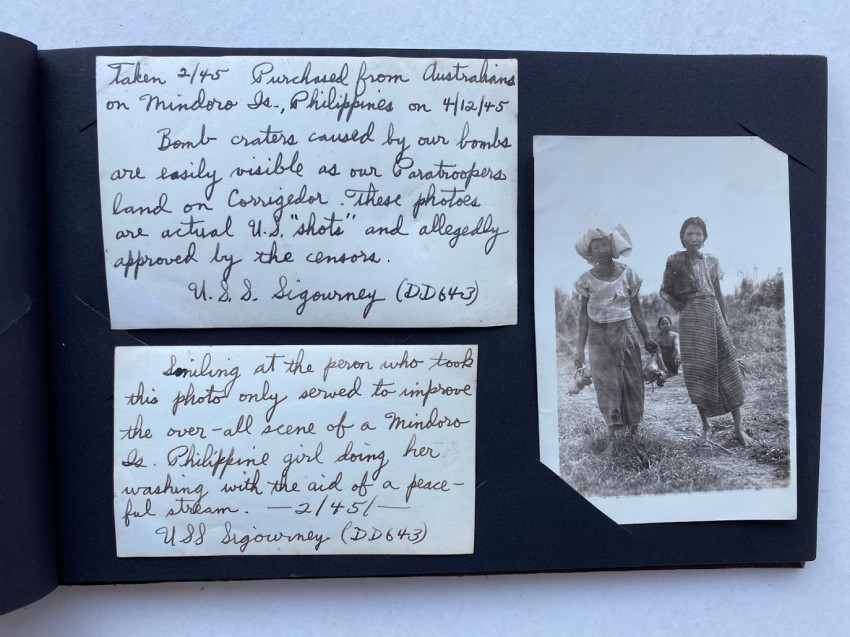 Taken 2/45 Purchased from Australians
on Mindoro Is., Philippines on 4/12/45
Bomb craters caused by our bombs
are easily visible as our Paratroopers
land on Corrigedor. These photoes
are actual U.S. "shots" and allegedly
approved by the censors.
U.S.S. Sigourney (DD643)
Smiling at the peron who took
this photo only served to improve
the over-all scene of a Mindoro
Is. Philippine girl doing her
washing with the aid of a peace-
ful stream. —2/45/—
USS Sigourney (DD643)